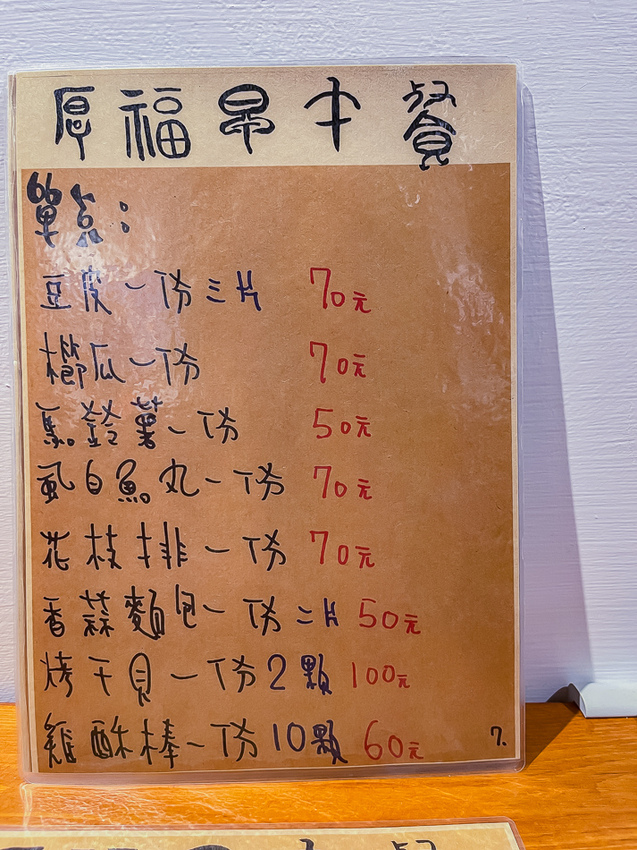 厚福早午餐
單点:
豆皮一份三片 70元
櫛瓜一份 70元
馬鈴薯一份 50元
虱白魚丸一份 70元
花枝排一份 70元
香蒜麵包一份二片 50元
烤干貝一份2顆 100元
雞酥棒一份10顆 60元 7.